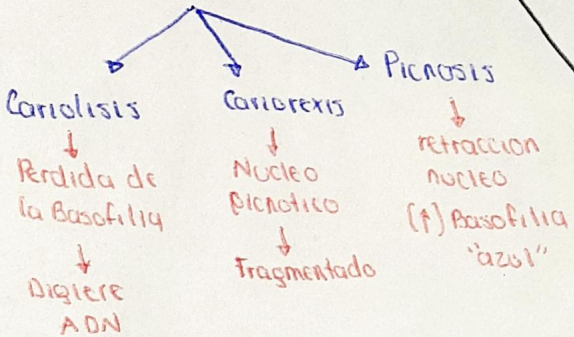 Cariolisis
Perdida de
la Basofilia
Digiere
ADN
Cariorexis
Nucleo
picnotico
Fragmentado
Picnosis
retraccion
nucleo
(↑) Basofilia
"azul"